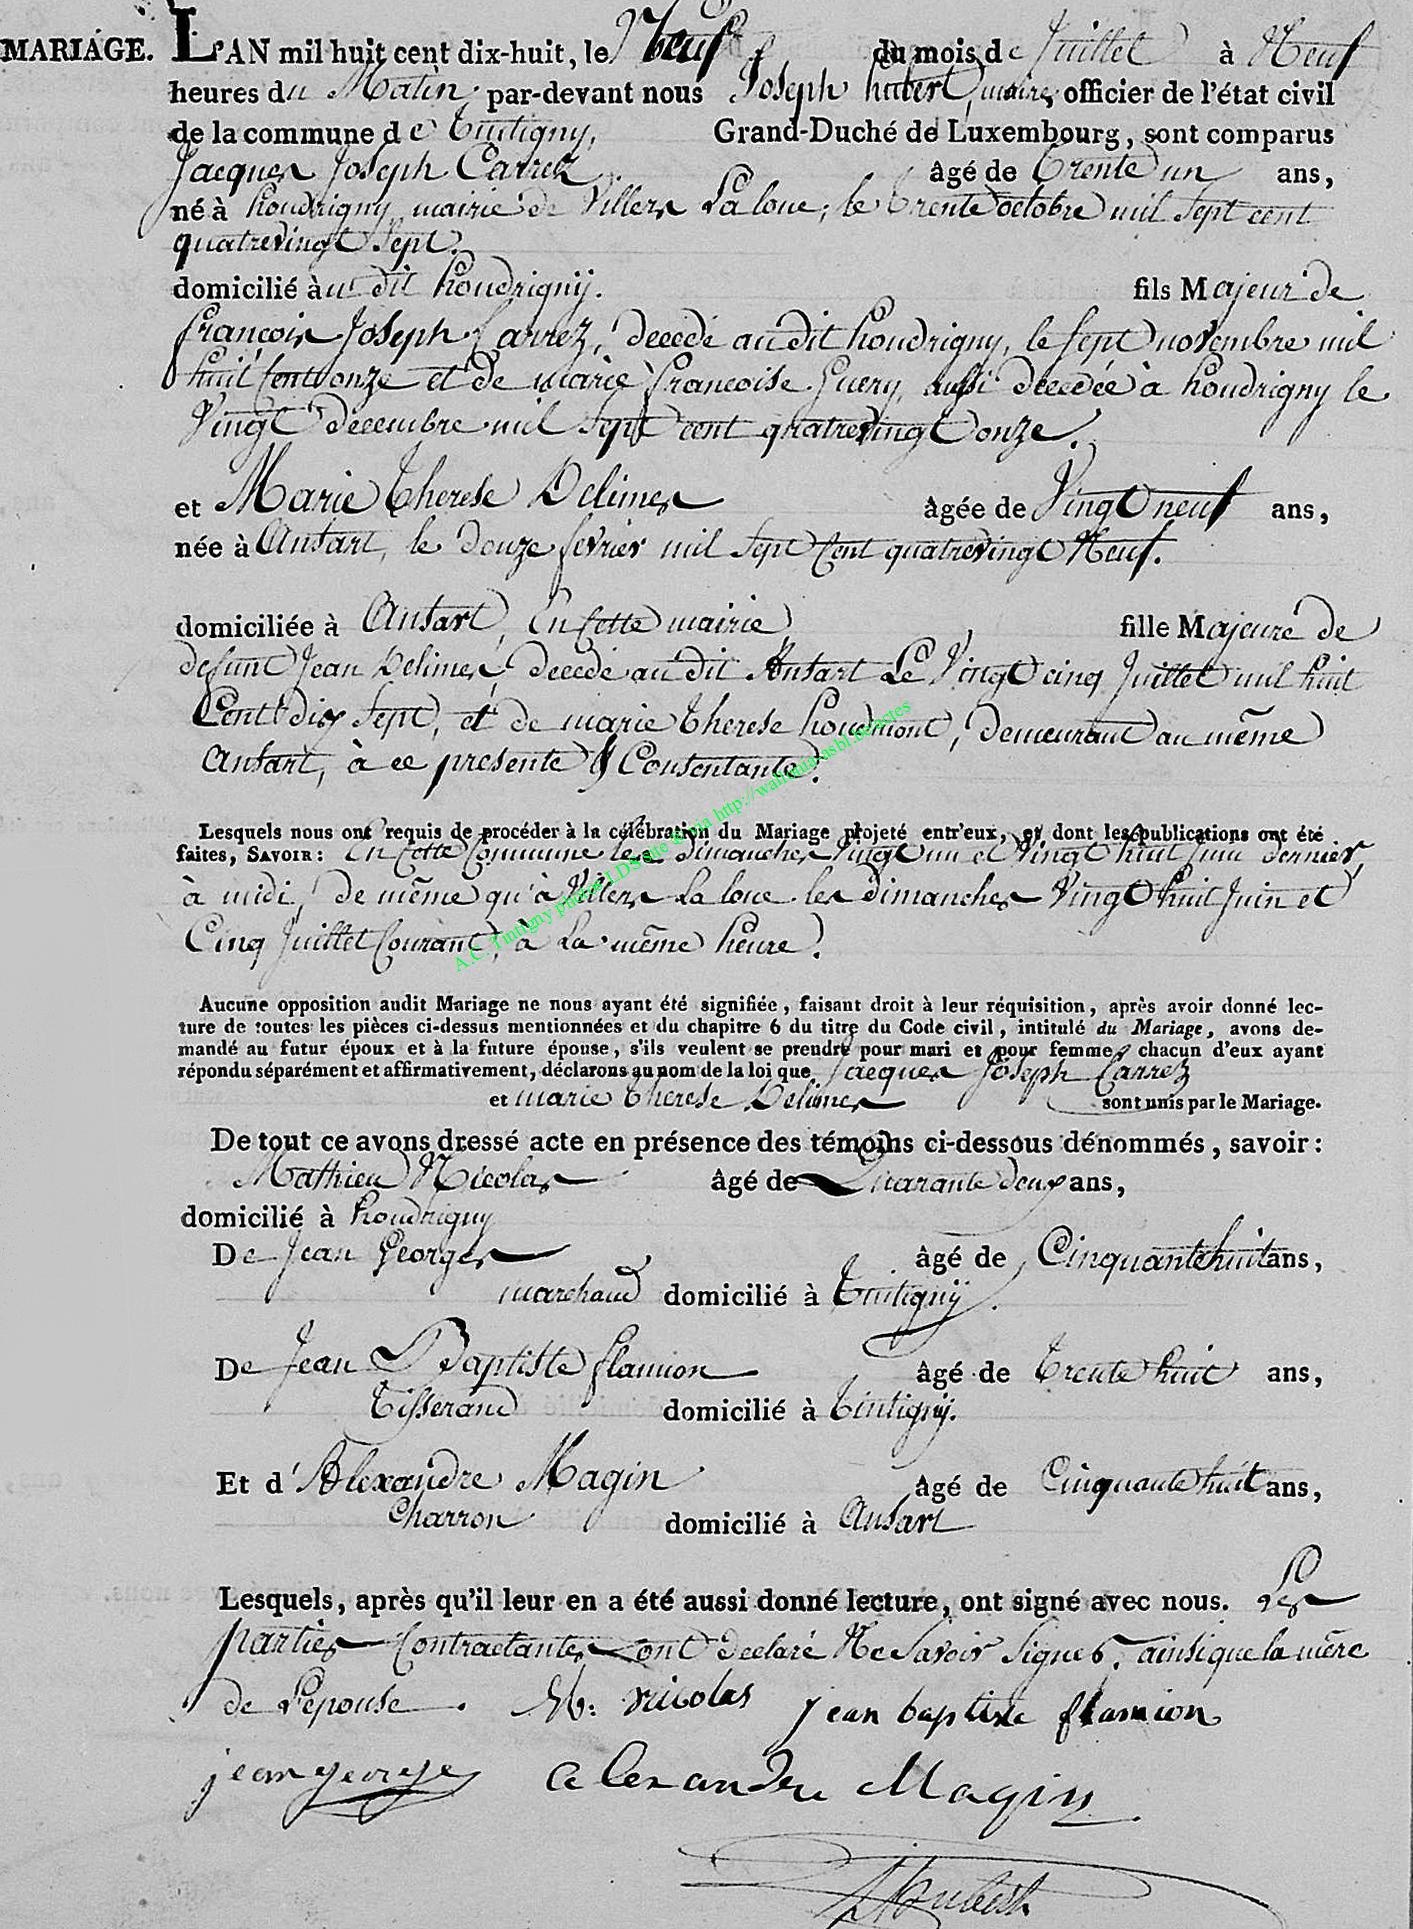 MARIAGE. L'AN mil huit cent dix-huit, le Neuf du mois de Juillet à Neuf
heures du Matin, par-devant nous Joseph hubert, maire, officier de l'état civil
de la commune de Tintigny, Grand-Duché de Luxembourg, sont comparus
Jacques Joseph Carrez âgé de trente un ans,
né à houdrigny, mairie de Villers La loue, le trente octobre mil sept cent
quatrevingt sept.
domicilié au dit houdrigny. fils Majeur de
francois Joseph Carrez, decedé au dit houdrigny, le sept novembre mil
huit Cent onze et de marie francoise Guery, aussi decedée à houdrigny le
Vingt decembre mil sept cent quatrevingt onze.
et Marie therese Delimes âgée de Vingt neuf ans,
née à Ansart, le douze fevrier mil sept Cent quatrevingt Neuf.
domiciliée à Ansart, En Cette mairie, fille Majeure de
defunt Jean Delimes, decedé au dit Ansart Le Vingt cinq Juillet mil huit
Cent dix sept, et de marie therese houdmont, demeurant au même
Ansart, à ce presente & Consentante.
Lesquels nous ont requis de procéder à la célébration du Mariage projeté entr'eux, et dont les publications ont été
faites, SAVOIR: En Cette Commune les dimanches Vingt un et Vingt huit Juin dernier,
à midi, de même qu'à Villers La loue les dimanches Vingt huit Juin et
Cinq Juillet Courant, à La même heure.
A.C. Tintigny photos LDS site via http://wallonia-asbl.be/actes
Aucune opposition audit Mariage ne nous ayant été signifiée, faisant droit à leur réquisition, après avoir donné lec-
ture de toutes les pièces ci-dessus mentionnées et du chapitre 6 du titre du Code civil, intitulé du Mariage, avons de-
mandé au futur époux et à la future épouse, s'ils veulent se prendre pour mari et pour femme, chacun d'eux ayant
répondu séparément et affirmativement, déclarons au nom de la loi que Jacques Joseph Carrez
et marie therese Delimes sont unis par le Mariage.
De tout ce avons dressé acte en présence des témoins ci-dessous dénommés, savoir:
Mathieu Nicolas âgé de Quarante deux ans,
domicilié à houdrigny
De Jean Georges âgé de Cinquante huit ans,
marchand domicilié à Tintigny.
De Jean Baptiste flamion âgé de trente huit ans,
Tisserand domicilié à tintigny.
Et d'Alexandre Magin âgé de Cinquante huit ans,
Charron domicilié à Ansart
Lesquels, après qu'il leur en a été aussi donné lecture, ont signé avec nous. Les
parties Contractantes ont declaré Ne Savoir Signer, ainsi que la mère
de l'épouse. M: nicolas jean baptiste flamion
jean george alexandre Magin
Hubert